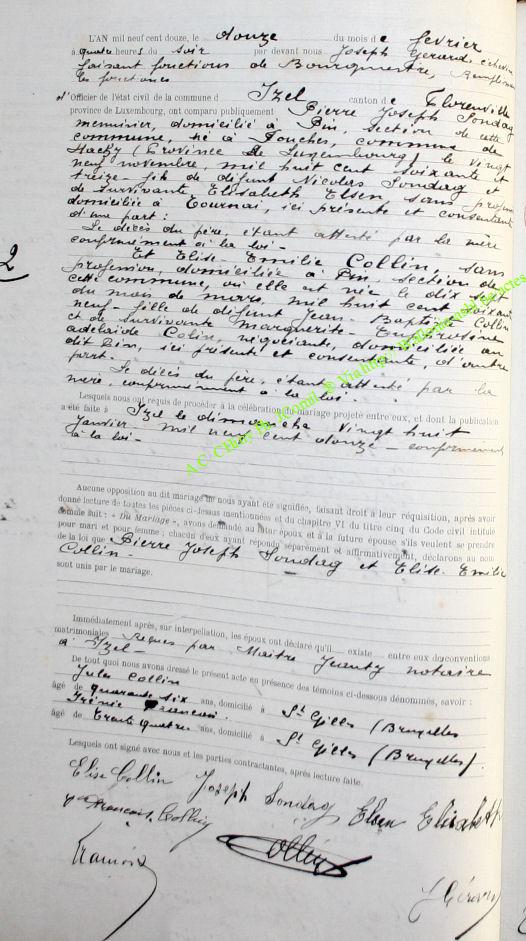 L'AN mil neuf cent douze, le douze du mois de février
à quatre heures du soir par devant nous Joseph Gérard, échevin
faisant fonctions de Bourgmestre, Remplissant
les fonctions
d'Officier de l'état civil de la commune d' Izel canton de Florenville
province de Luxembourg, ont comparu publiquement Pierre Joseph Sondag
menuisier, domicilié à Pin, section de cette
commune, né à commune de
Hachy (Province de Luxembourg) le vingt
neuf novembre mil huit cent soixante et
treize fils de défunt Nicolas Sondag et
de survivante Elisabeth Elsen, sans profession
domiciliée à Tournai, ici présente et consentante
d'une part :
Le décès du père, étant attesté par la mère
conformément à la loi -
Et Elise - Emilie Collin, sans
profession, domiciliée à Pin, section de
cette commune, où elle est née le dix sept
du mois de mars, mil huit cent soixante
neuf - fille de défunt Jean - Baptiste Collin
et de survivante Marguerite - Euphrosine
adelaïde Colin, négociante, domiciliée au
dit Pin, ici présente et consentante, d'autre
part.
Le décès du père, étant attesté par la
mère, conformément à la loi.
Lesquels nous ont requis de procéder à la célébration du mariage projeté entre eux, et dont la publication
a été faite à Izel le dimanche vingt huit
Janvier mil neuf cent douze - conformément
à la loi -
2
Aucune opposition au dit mariage ne nous ayant été signifiée, faisant droit à leur réquisition, après avoir
donné lecture de toutes les pièces ci-dessus mentionnées et du chapitre VI du titre cinq du Code civil intitulé
comme suit : « Du Mariage », avons demandé au futur époux et à la future épouse s'ils veulent se prendre
pour mari et pour femme ; chacun d'eux ayant répondu séparément et affirmativement, déclarons au nom
de la loi que Pierre Joseph Sondag et Elise - Emilie
Collin -
sont unis par le mariage.
Immédiatement après, sur interpellation, les époux ont déclaré qu'il existe entre eux des conventions
matrimoniales reçues par Maître Jeanty notaire
à Izel -
De tout quoi nous avons dressé le présent acte en présence des témoins ci-dessous dénommés, savoir :
Jules Collin
âgé de quarante six ans, domicilié à St Gilles (Bruxelles
Irénée François.
âgé de trente quatre ans, domicilié à St Gilles (Bruxelles).
Lesquels ont signé avec nous et les parties contractantes, après lecture faite.
Elise Collin Joseph Sondag Elsen Elisabeth
François Collin
J Gérard